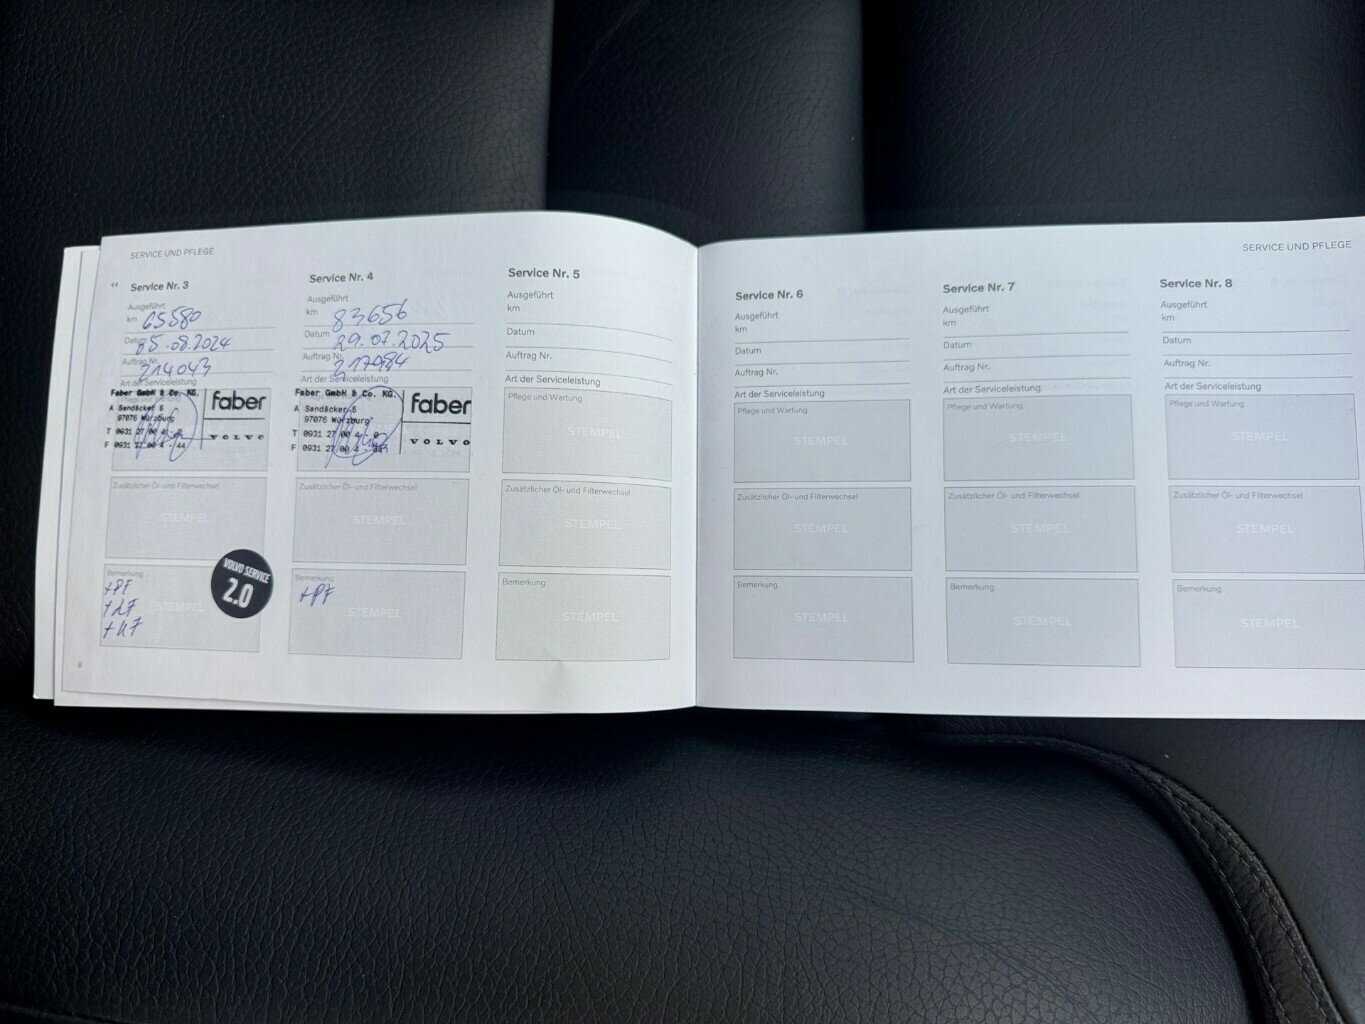 SERVICE UND PFLEGE
“
Service Nr. 3
Ausgeführt
km 65580
Datum 05.08.2024
Auftrag Nr. 214043
Art der Serviceleistung
Pflege und Wartung
Faber GmbH & Co. KG.
A Sandäcker 5
97076 Würzburg
T 0931 27 00 4 - 0
F 0931 27 00 4 - 44
faber
VOLVO
Zusätzlicher Öl- und Filterwechsel
STEMPEL
Bemerkung
+PF
+LF
STEMPEL
VOLVO SERVICE
2.0
Service Nr. 4
Ausgeführt
km 83656
Datum 29.07.2025
Auftrag Nr. 217984
Art der Serviceleistung
Faber GmbH & Co. KG.
A Sandäcker 5
97076 Würzburg
T 0931 27 00 4 - 0
F 0931 27 00 4 - 44
faber
VOLVO
Zusätzlicher Öl- und Filterwechsel
STEMPEL
Bemerkung
+PF
STEMPEL
Service Nr. 5
Ausgeführt
km
Datum
Auftrag Nr.
Art der Serviceleistung
Pflege und Wartung
STEMPEL
Zusätzlicher Öl- und Filterwechsel
STEMPEL
Bemerkung
STEMPEL
8
SERVICE UND PFLEGE
Service Nr. 6
Ausgeführt
km
Datum
Auftrag Nr.
Art der Serviceleistung
Pflege und Wartung
STEMPEL
Zusätzlicher Öl- und Filterwechsel
STEMPEL
Bemerkung
STEMPEL
Service Nr. 7
Ausgeführt
km
Datum
Auftrag Nr.
Art der Serviceleistung
Pflege und Wartung
STEMPEL
Zusätzlicher Öl- und Filterwechsel
STEMPEL
Bemerkung
STEMPEL
Service Nr. 8
Ausgeführt
km
Datum
Auftrag Nr.
Art der Serviceleistung
Pflege und Wartung
STEMPEL
Zusätzlicher Öl- und Filterwechsel
STEMPEL
Bemerkung
STEMPEL